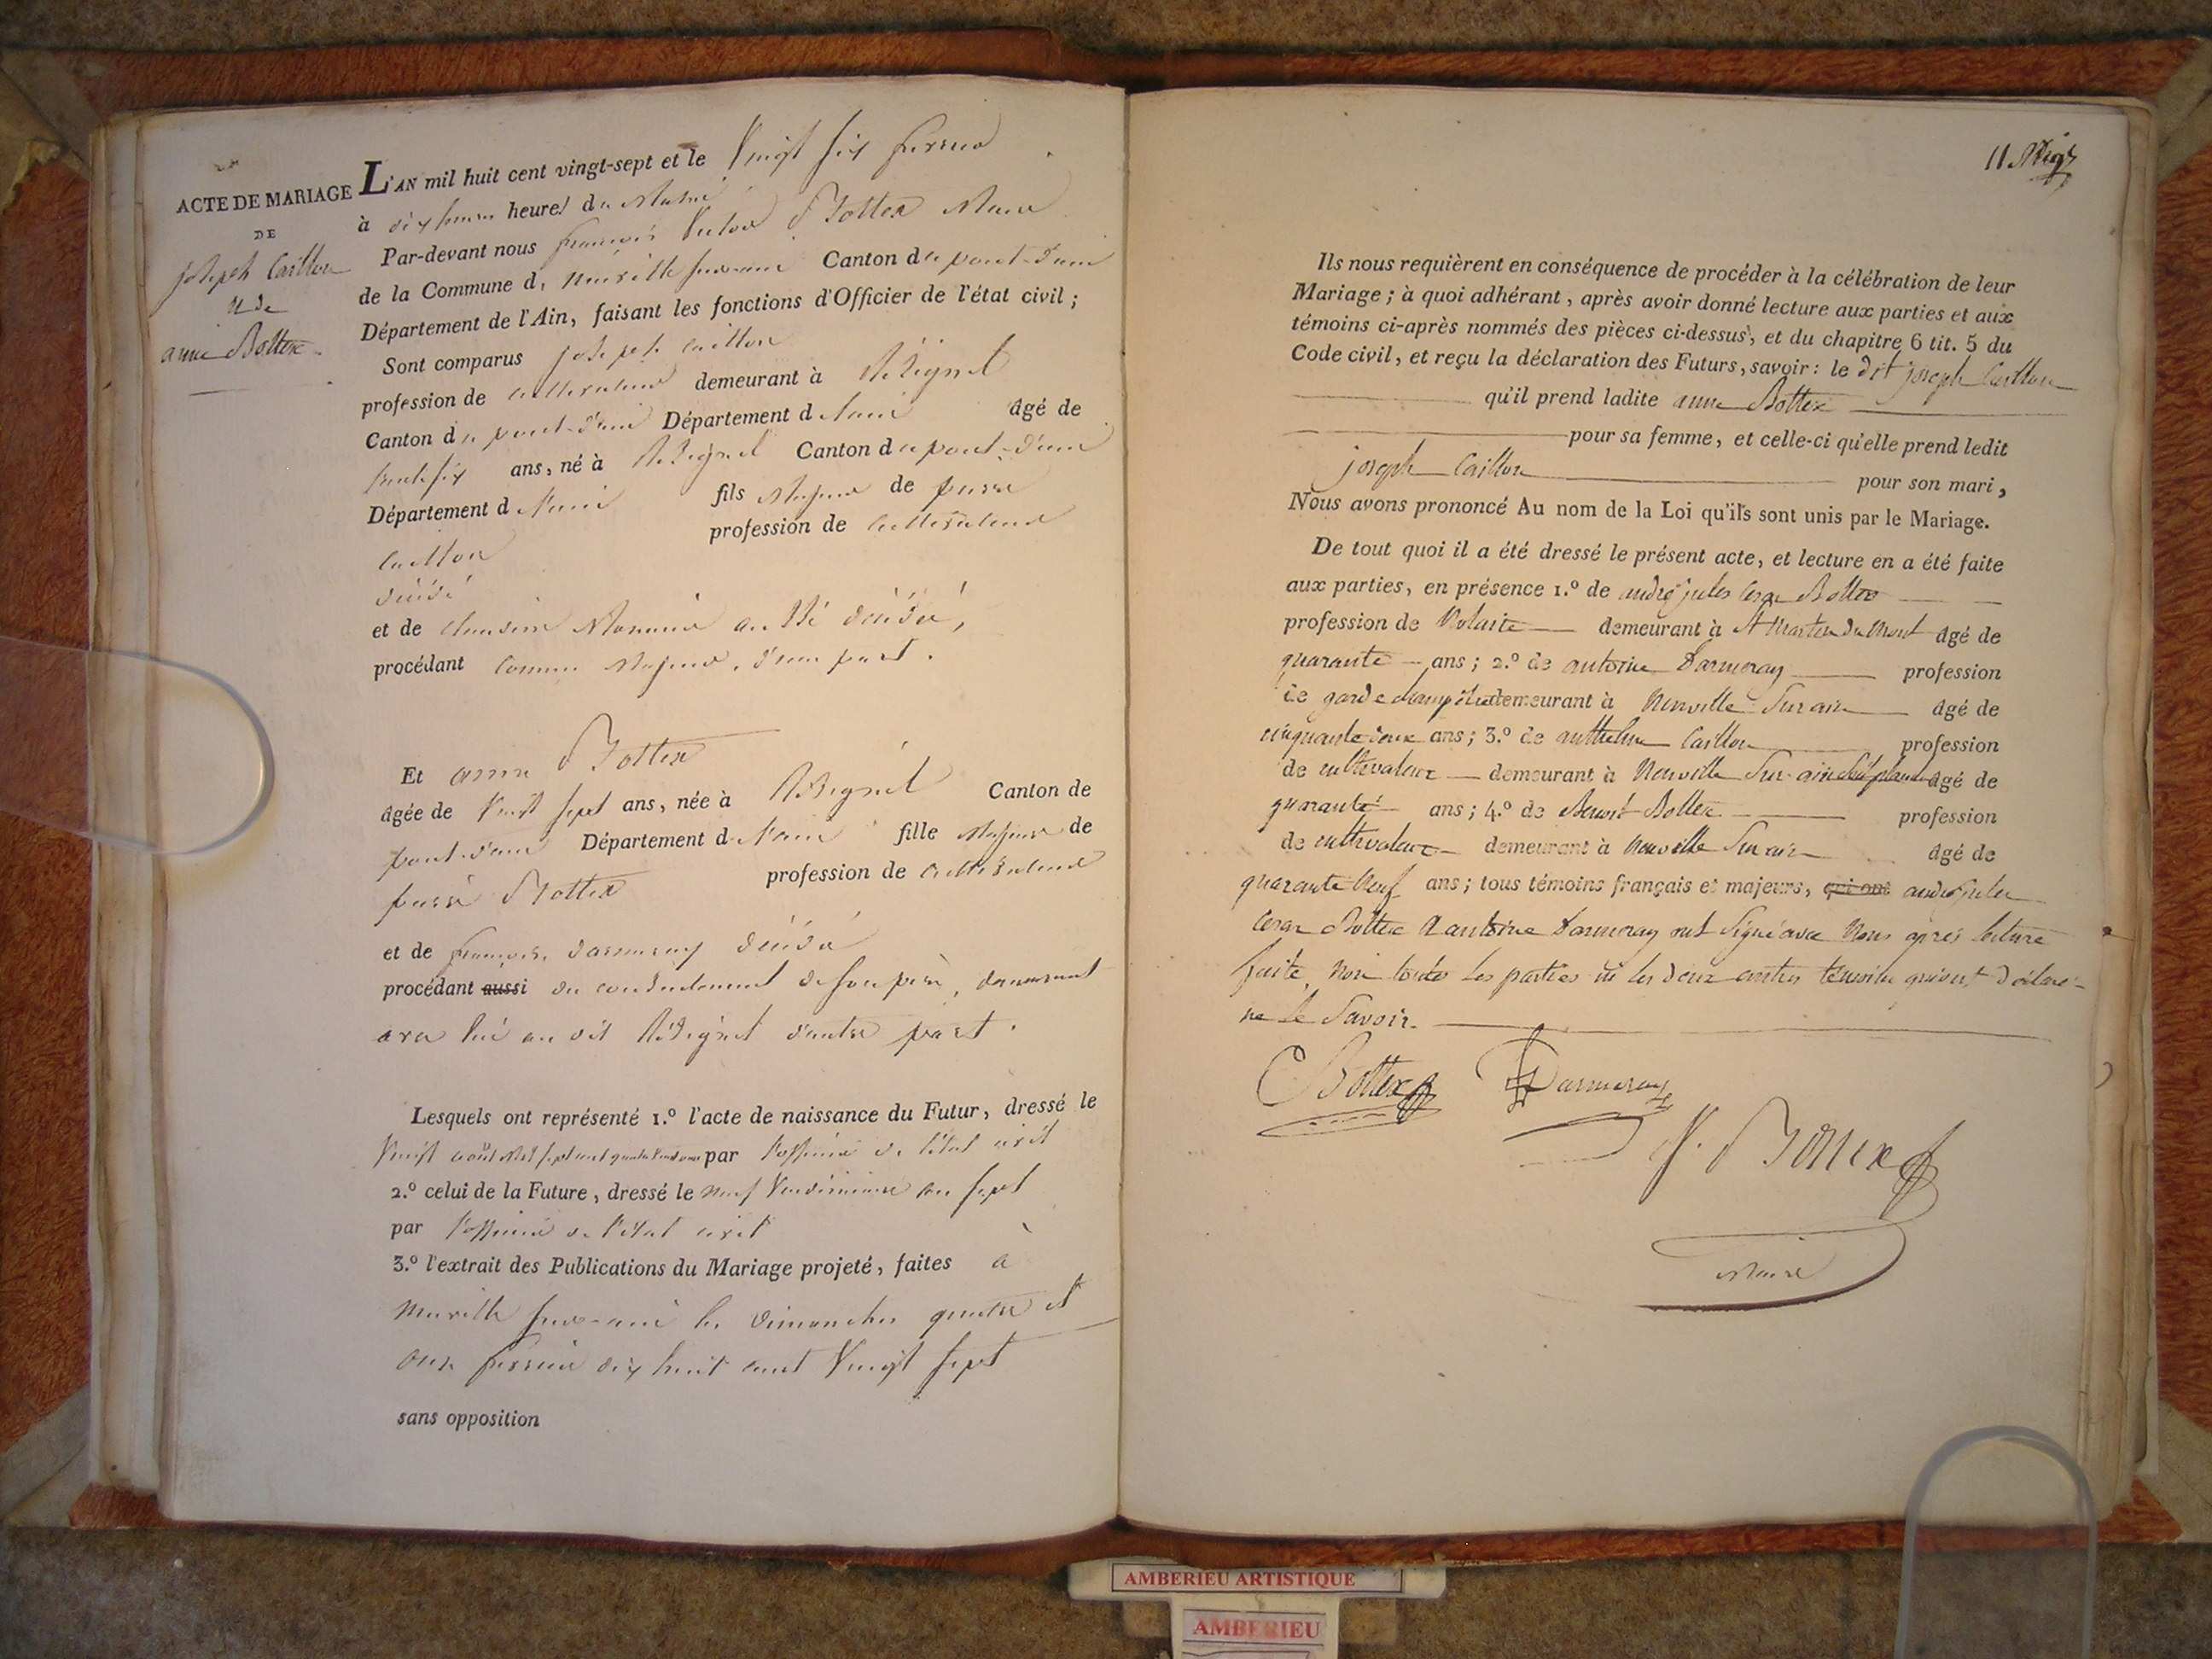 ACTE DE MARIAGE
DE
joseph Caillon
& de
anne Bottex
L'AN mil huit cent vingt-sept et le Vingt six fevrier
à dix heures heures du Matin
Par-devant nous françois Victor Bottex Maire
de la Commune de neuville sur-ain Canton du pont-d'ain
Département de l'Ain, faisant les fonctions d'Officier de l'état civil;
Sont comparus joseph caillon
profession de cultivateur demeurant à
Canton du pont-d'ain Département de l'ain âgé de
trente six ans, né à Canton du pont-d'ain
Département de l'ain fils Majeur de pierre
caillon profession de cultivateur
décédé
et de claudine aussi décédée,
procédant comme Majeur, d'une part.
Et anne Bottex
âgée de Vingt sept ans, née à Canton de
pont-d'ain Département de l'ain fille Majeure de
pierre Bottex profession de cultivateur
et de françoise darmeray décédée
procédant aussi du consentement de son père, demeurant
avec lui au dit d'autre part.
Lesquels ont représenté 1.º l'acte de naissance du Futur, dressé le
Vingt août Mil sept cent quatre vingt onze par l'officier de l'état civil
2.º celui de la Future, dressé le neuf Vendémiaire an sept
par l'officier de l'état civil
3.º l'extrait des Publications du Mariage projeté, faites à
neuville sur-ain les dimanches quatre et
onze fevrier dix huit cent Vingt sept
sans opposition
11
Ils nous requièrent en conséquence de procéder à la célébration de leur
Mariage; à quoi adhérant, après avoir donné lecture aux parties et aux
témoins ci-après nommés des pièces ci-dessus, et du chapitre 6 tit. 5 du
Code civil, et reçu la déclaration des Futurs, savoir: le dit joseph Caillon
qu'il prend ladite anne Bottex
pour sa femme, et celle-ci qu'elle prend ledit
joseph Caillon pour son mari,
Nous avons prononcé Au nom de la Loi qu'ils sont unis par le Mariage.
De tout quoi il a été dressé le présent acte, et lecture en a été faite
aux parties, en présence 1.º de andré jules Cesar Bottex
profession de Notaire demeurant à St Martin du Mont âgé de
quarante ans; 2.º de antoine Darmeray profession
de garde champêtre demeurant à Neuville Sur ain âgé de
cinquante deux ans; 3.º de anthelme Caillon profession
de cultivateur demeurant à Neuville Sur ain âgé de
quarante ans; 4.º de Benoit Bottex profession
de cultivateur demeurant à Neuville Sur ain âgé de
quarante Neuf ans; tous témoins français et majeurs, qui ont andré jules
Cesar Bottex & antoine Darmeray ont Signé avec Nous après lecture
faite, Non toutes les parties ni les deux autres témoins qui ont déclaré
ne le Savoir.
C Bottex Darmeray
V. Bottex
Maire
AMBERIEU ARTISTIQUE
AMBERIEU